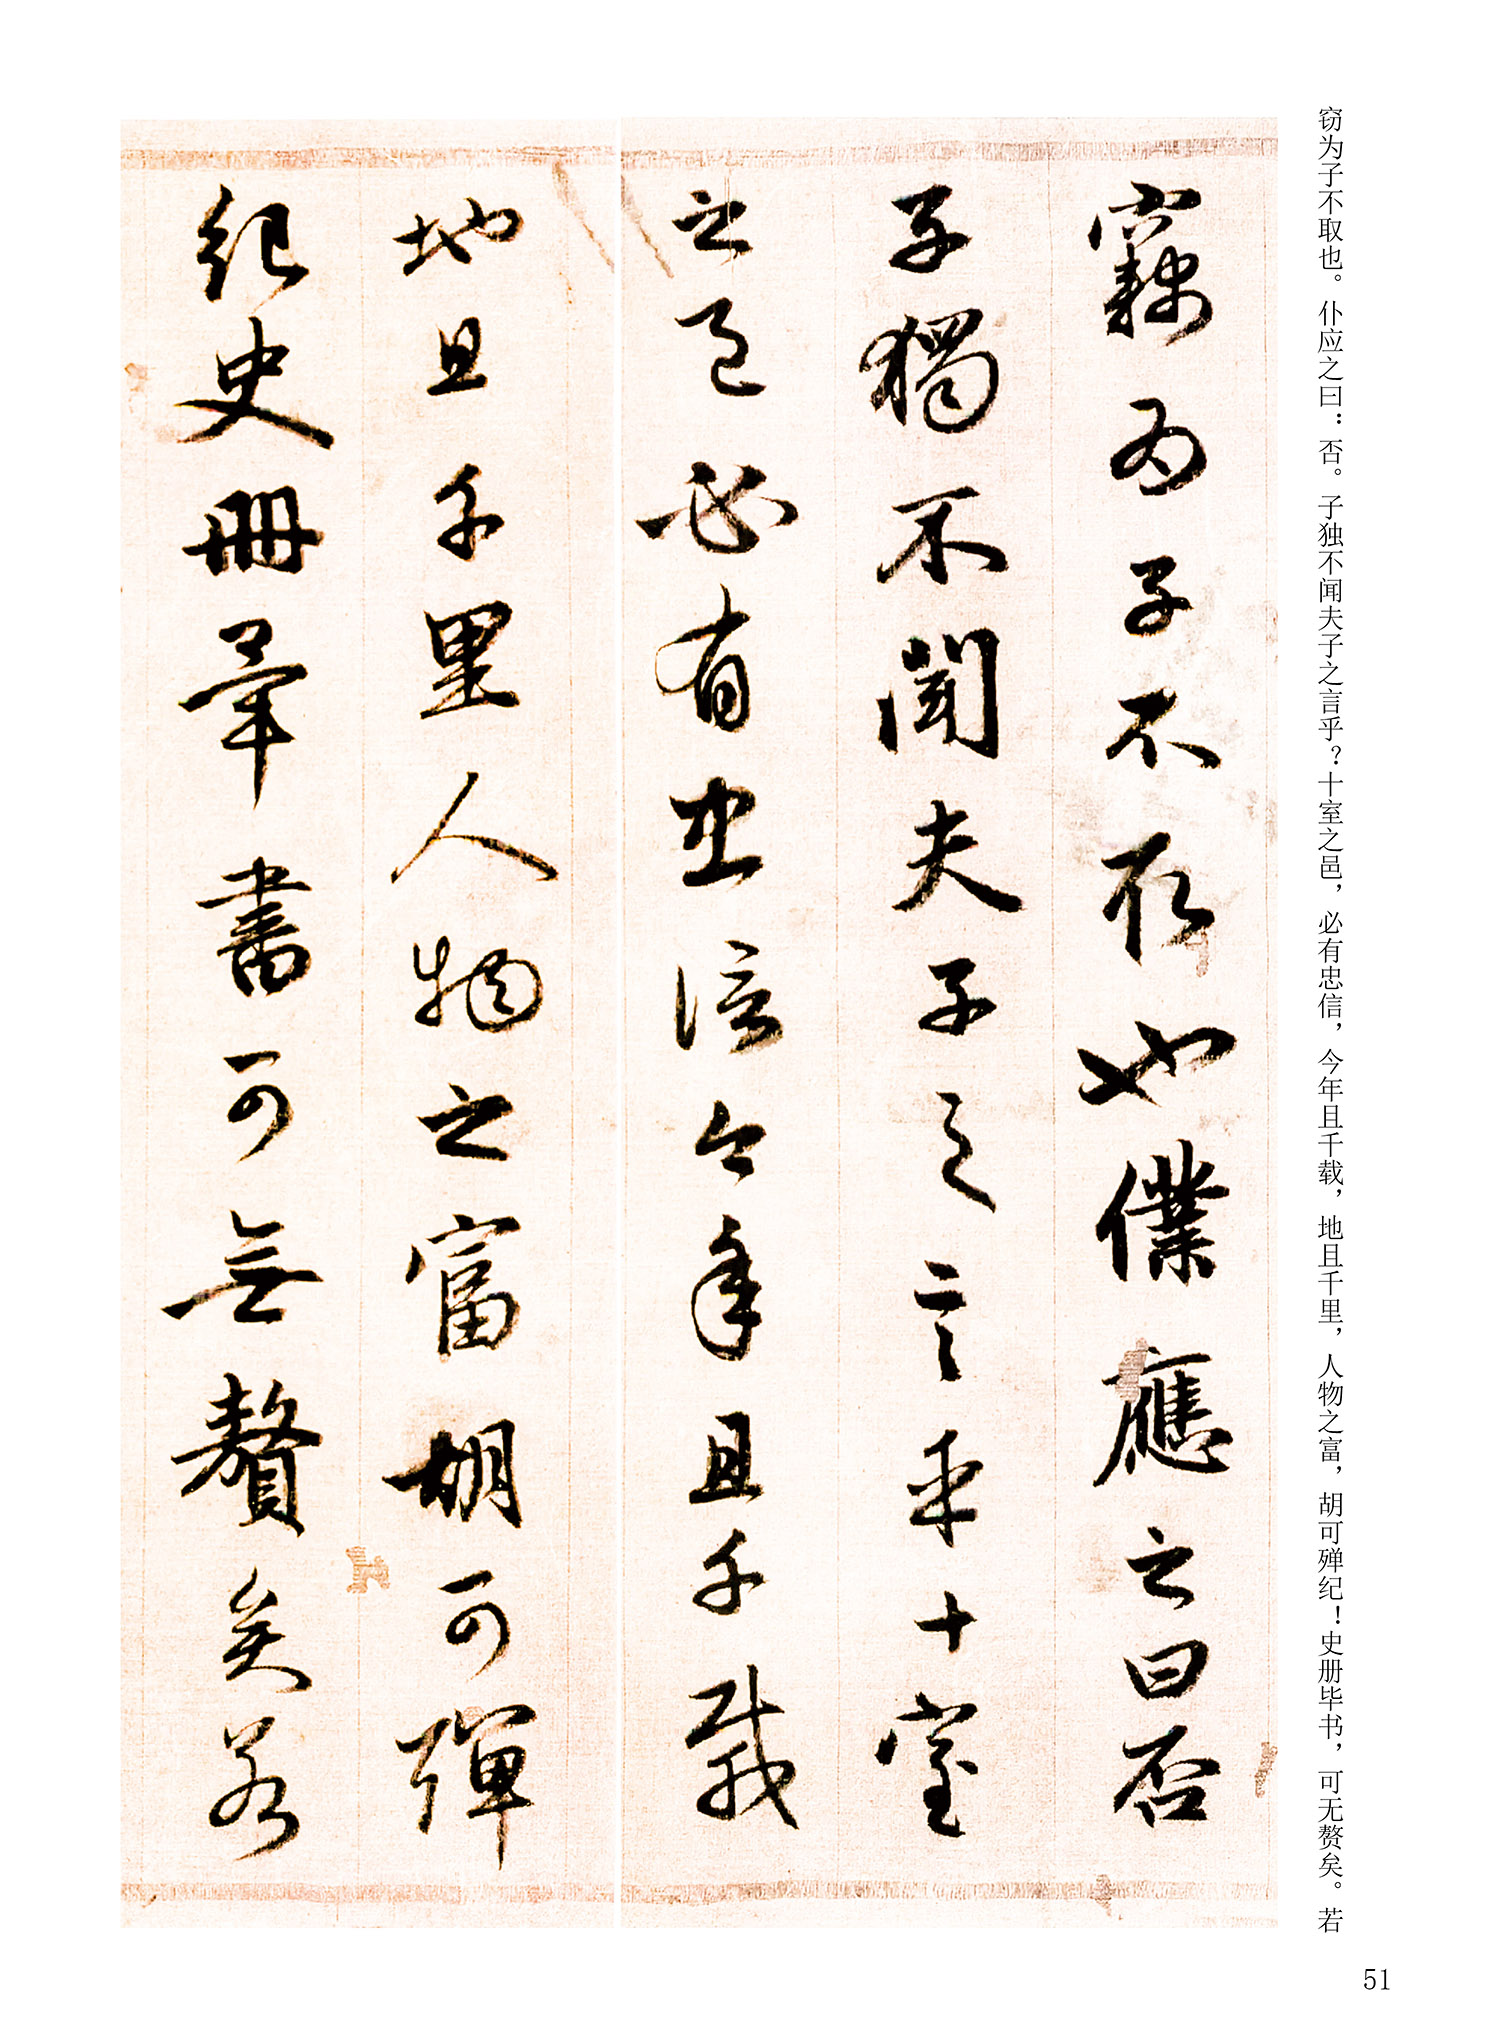 窃为子不取也。仆应之曰：否。子独不闻夫子之言乎？十室之邑，必有忠信，今年且千载，地且千里，人物之富，胡可殚纪！史册毕书，可无赘矣。若
竊为子不取也僕應之曰否
子獨不聞夫子之言乎十室
之邑必有忠信今年且千載
地且千里人物之富胡可彈
紀史冊畢書可無贅矣若
51